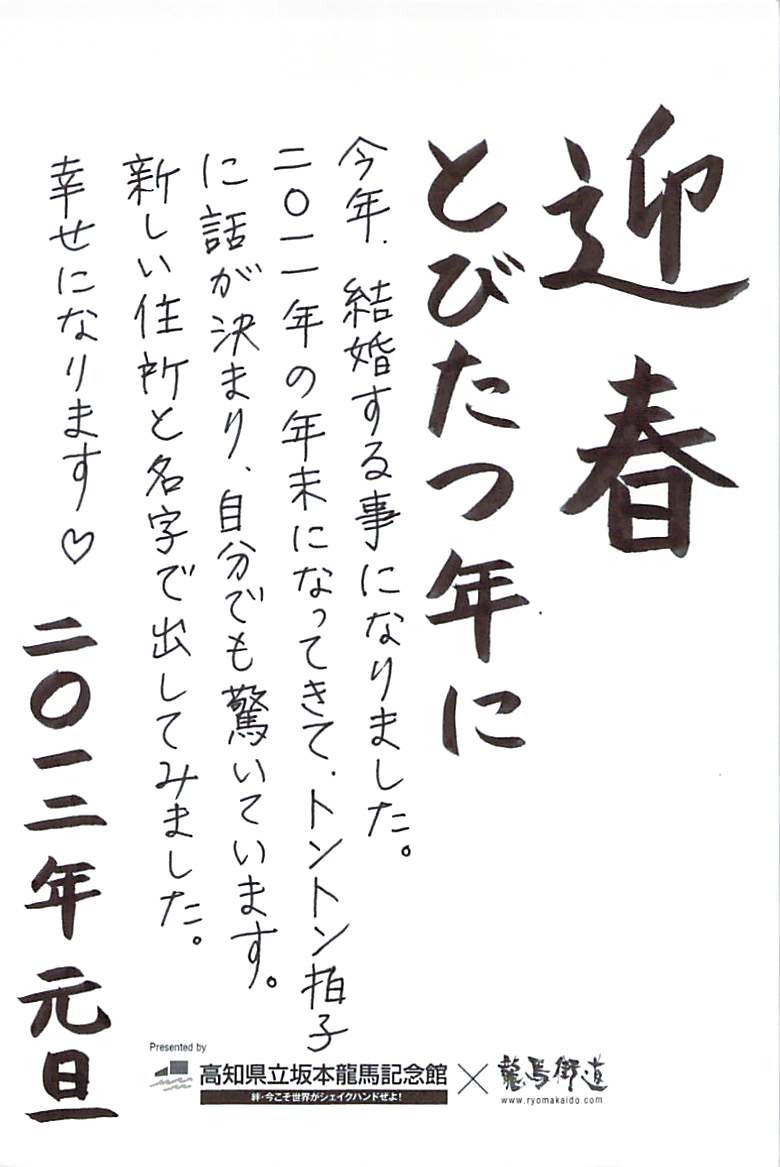 迎春
とびたつ年に
今年、結婚する事になりました。
二〇一一年の年末になってきて、トントン拍子
に話が決まり、自分でも驚いています。
新しい住所と名字で出してみました。
幸せになります♡
二〇一二年 元旦
Presented by
高知県立坂本龍馬記念館
絆・今こそ世界がシェイクハンドぜよ!
×
龍馬街道
www.ryomakaido.com